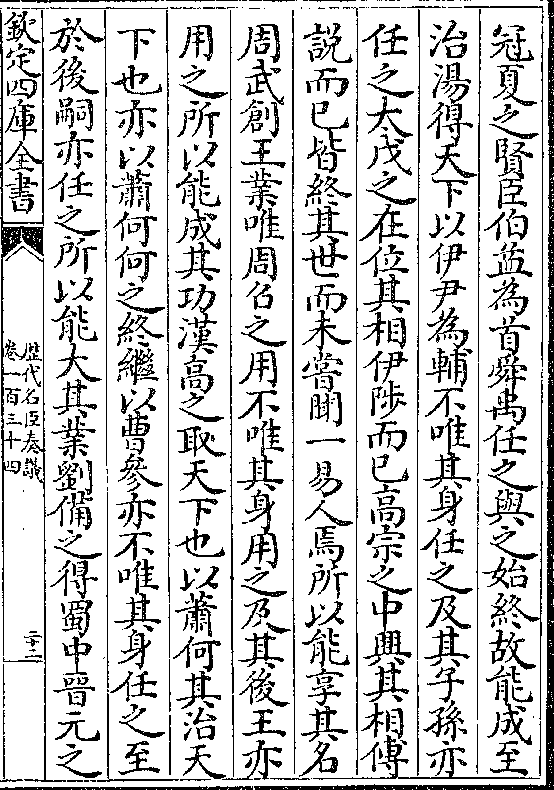 冠夏之賢臣伯益為首舜禹任之與之始終故能成至
治湯得天下以伊尹為輔不唯其身任之及其子孫亦
任之大戊之在位其相伊陟而已高宗之中興其相傅
說而已皆終其世而未嘗聞一易人焉所以能享其名
周武創王業唯周召之用不唯其身用之及其後王亦
用之所以能成其功漢高之取天下也以蕭何其治天
下也亦以蕭何何之終繼以曹參亦不唯其身任之至
於後嗣亦任之所以能大其業劉備之得蜀中晉元之
欽定四庫全書
歷代名臣奏議
卷一百三十四
二十二